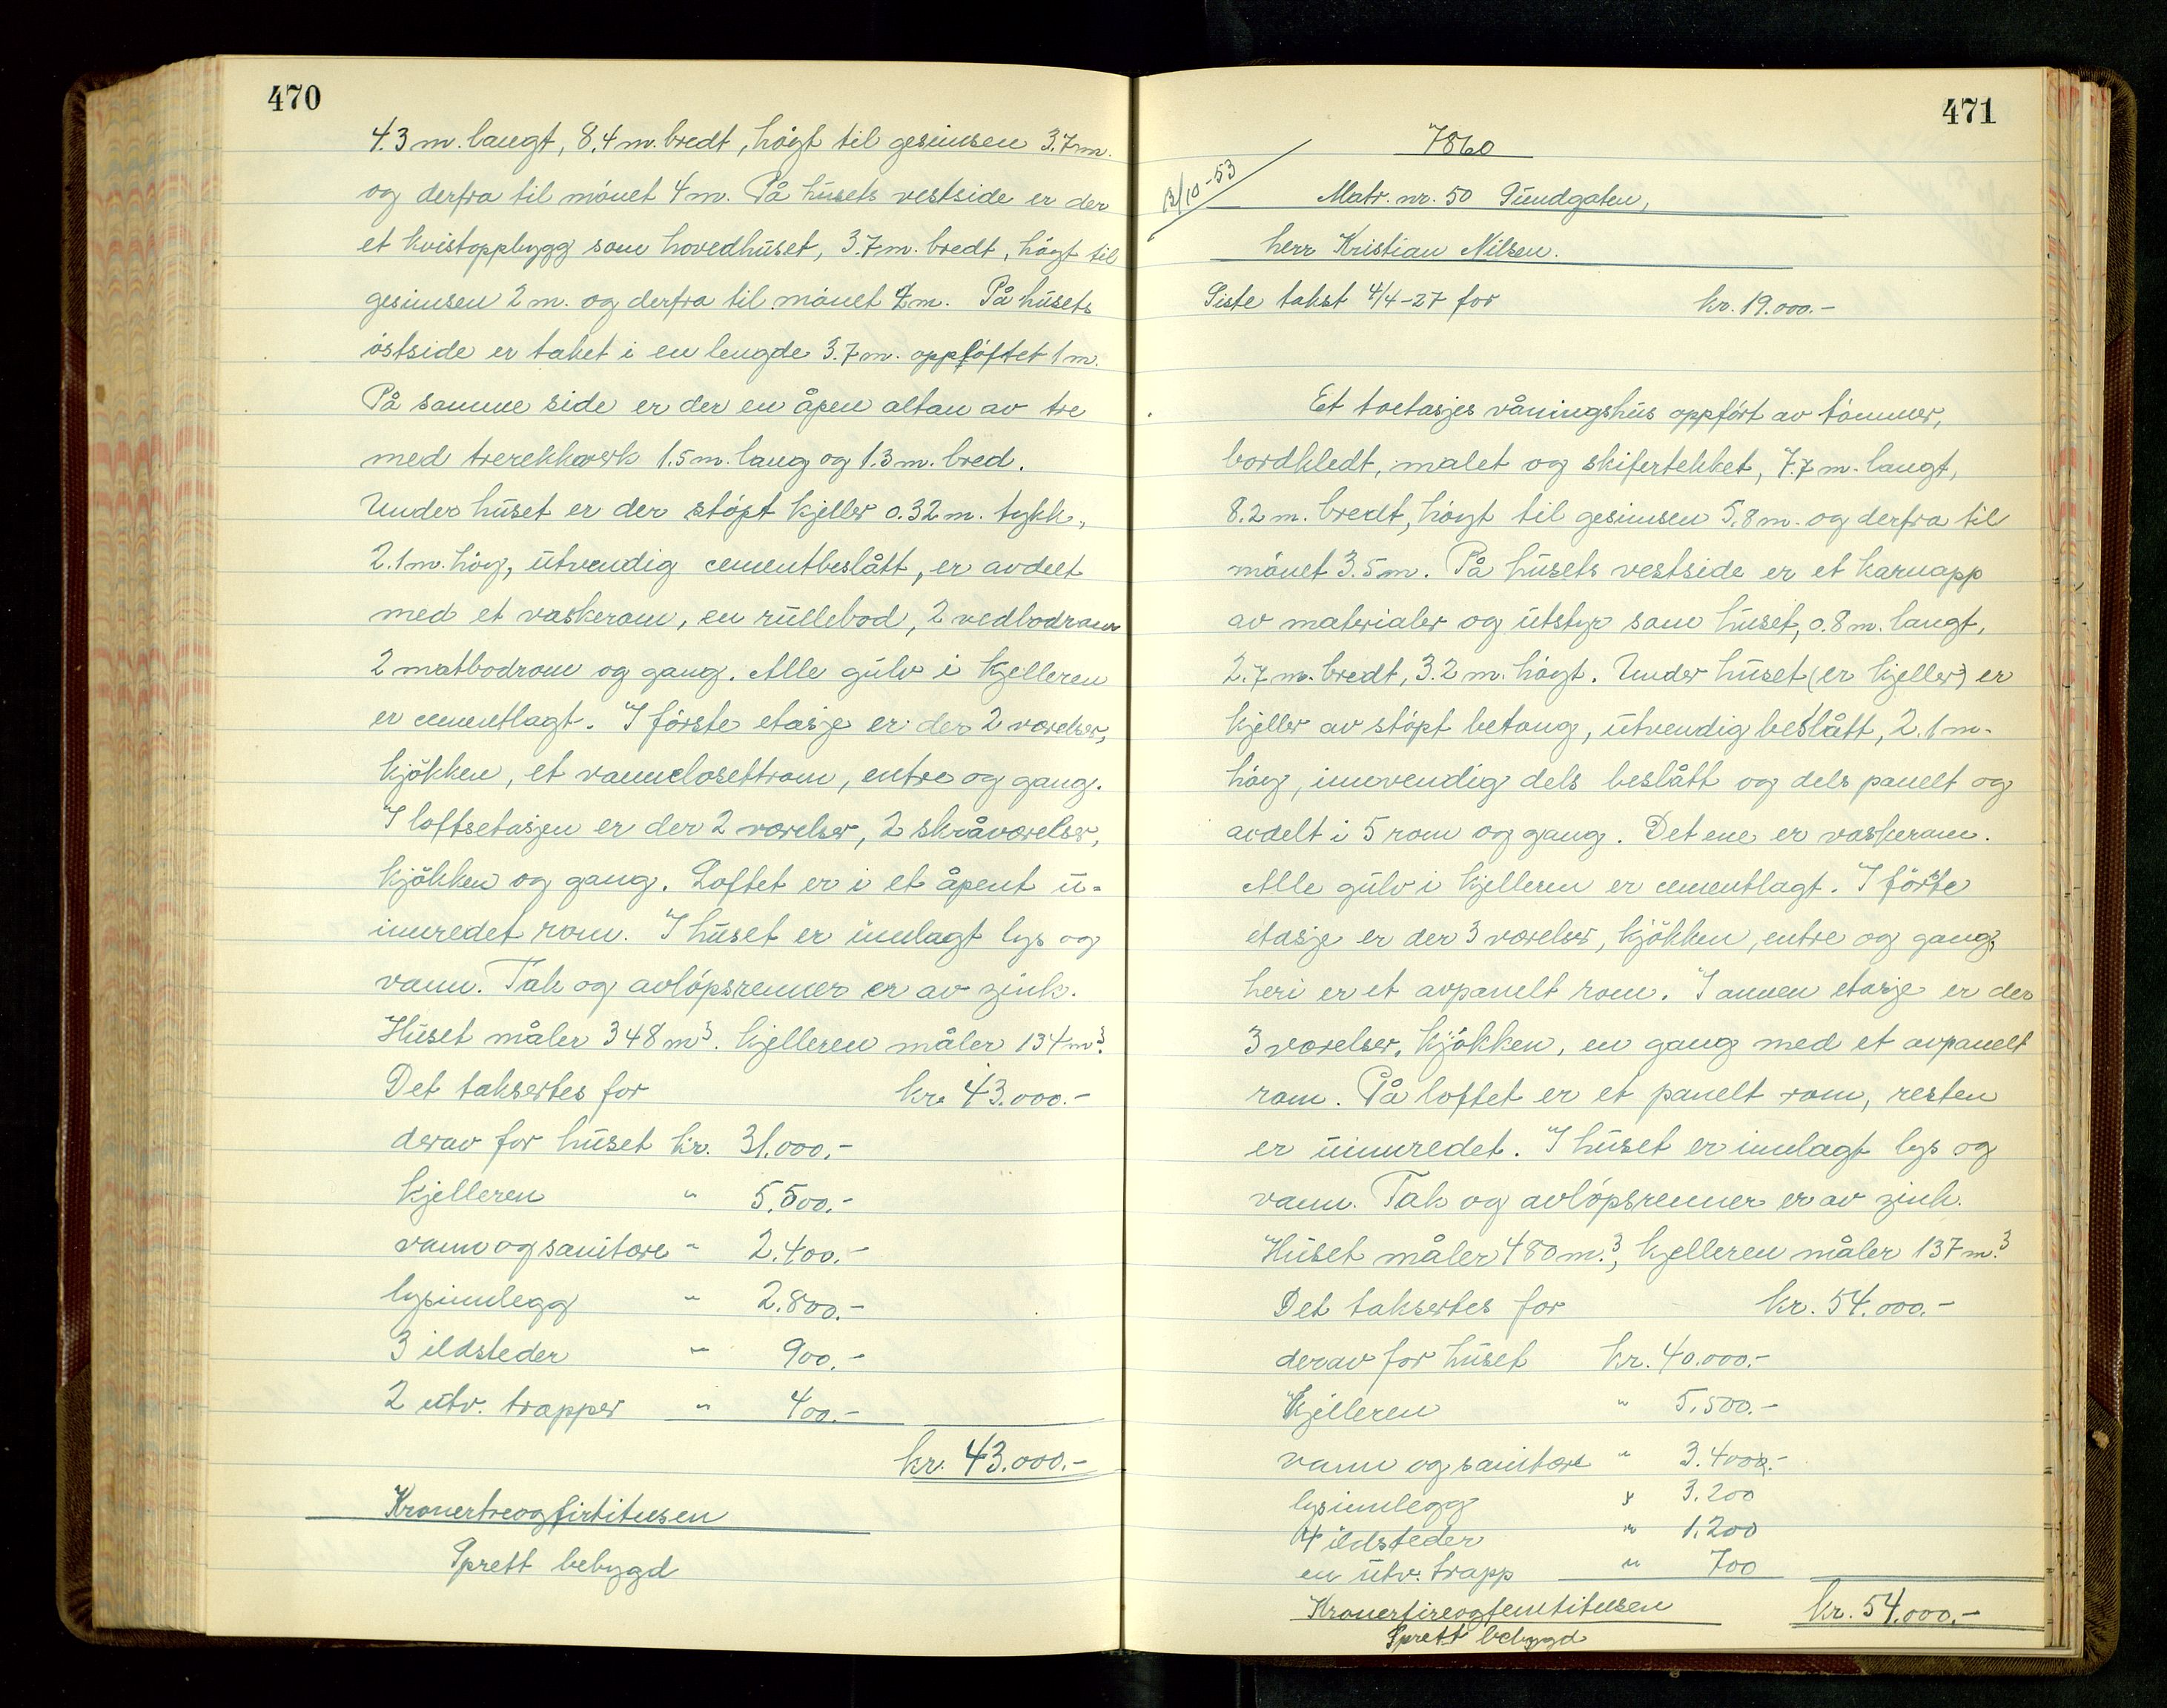 470
4.3 m. langt, 8.4 m. bredt, högt til gesimsen 3.7 m.
og derfra til mönet 4 m. På husets vestside er der
et kvistoppbygg som hovedhuset, 3.7 m. bredt, högt til
gesimsen 2 m. og derfra til mönet 2 m. På husets
östside er taket i en lengde 3.7 m. oppløftet 1 m.
På samme side er der en åpen altan av tre
med trerekkverk 1.5 m. lang og 1.3 m. bred.
Under huset er der stöpt kjeller 0.32 m. tykk,
2.1 m. hög, utvendig cementbeslått, er avdelt
med et vaskerom, en rullebod, 2 vedbodrom
2 matbodrom og gang. Alle gulv i kjelleren
er cementlagt. I förste etasje er der 2 værelser,
kjökken, et vannclosettrom, entre og gang.
I loftsetasjen er der 2 værelser, 2 skråværelser,
kjökken og gang. Loftet er i et åpent u-
innredet rom. I huset er innlagt lys og
vann. Tak og avlöpsrenner er av zink.
Huset måler 348 m³. Kjelleren måler 134 m³.
Det takseres for kr. 43.000.-
derav for huset kr. 31.000.-
Kjelleren " 5.500.-
vann og sanitære " 2.400.-
lysinnlegg " 2.800.-
3 ildsteder " 900.-
2 utv. trapper " 400.-
kr. 43.000.-
Kronertreogfirtitusen
Sprett bebygd
471
7860
13/10-53
Matr. nr. 50 Sundgaten,
herr Kristian Nilsen.
Siste takst 4/4-27 for kr. 19.000.-
Et toetasjes våningshus oppfört av tömmer,
bordkledt, malet og skifertekket, 7.7 m. langt,
8.2 m. bredt, högt til gesimsen 5.8 m. og derfra til
mönet 3.5 m. På husets vestside er et karnapp
av materialer og utstyr som huset, 0.8 m. langt,
2.7 m. bredt, 3.2 m. högt. Under huset (er kjeller) er
kjeller av stöpt betong, utvendig beslått, 2.1 m.
hög, innvendig dels beslått og dels panelt og
avdelt i 5 rom og gang. Det ene er vaskerom.
Alle gulv i kjelleren er cementlagt. I förste
etasje er der 3 værelser, kjökken, entre og gang,
heri er et avpanelt rom. I annen etasje er der
3 værelser, kjökken, en gang med et avpanelt
rom. På loftet er et panelt rom, resten
er uinnredet. I huset er innlagt lys og
vann. Tak og avlöpsrenner er av zink.
Huset måler 480 m.³, kjelleren måler 137 m.³
Det takseres for kr. 54.000.-
derav for huset kr. 40.000.-
Kjelleren " 5.500.-
vann og sanitære " 3.400.-
lysinnlegg " 3.200
4 ildsteder " 1.200
en utv. trapp " 700
Kronerfireogfemtitusen kr. 54.000.-
Sprett bebygd